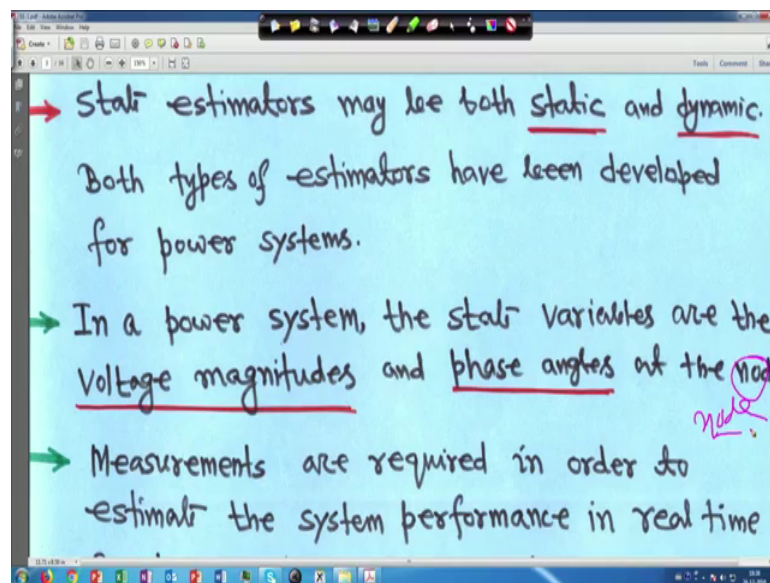 Create
1 / 14
150%
Tools Comment
State estimators may be both static and dynamic.
Both types of estimators have been developed
for power systems.
In a power system, the state variables are the
voltage magnitudes and phase angles at the nod
node
Measurements are required in order to
estimate the system performance in real time